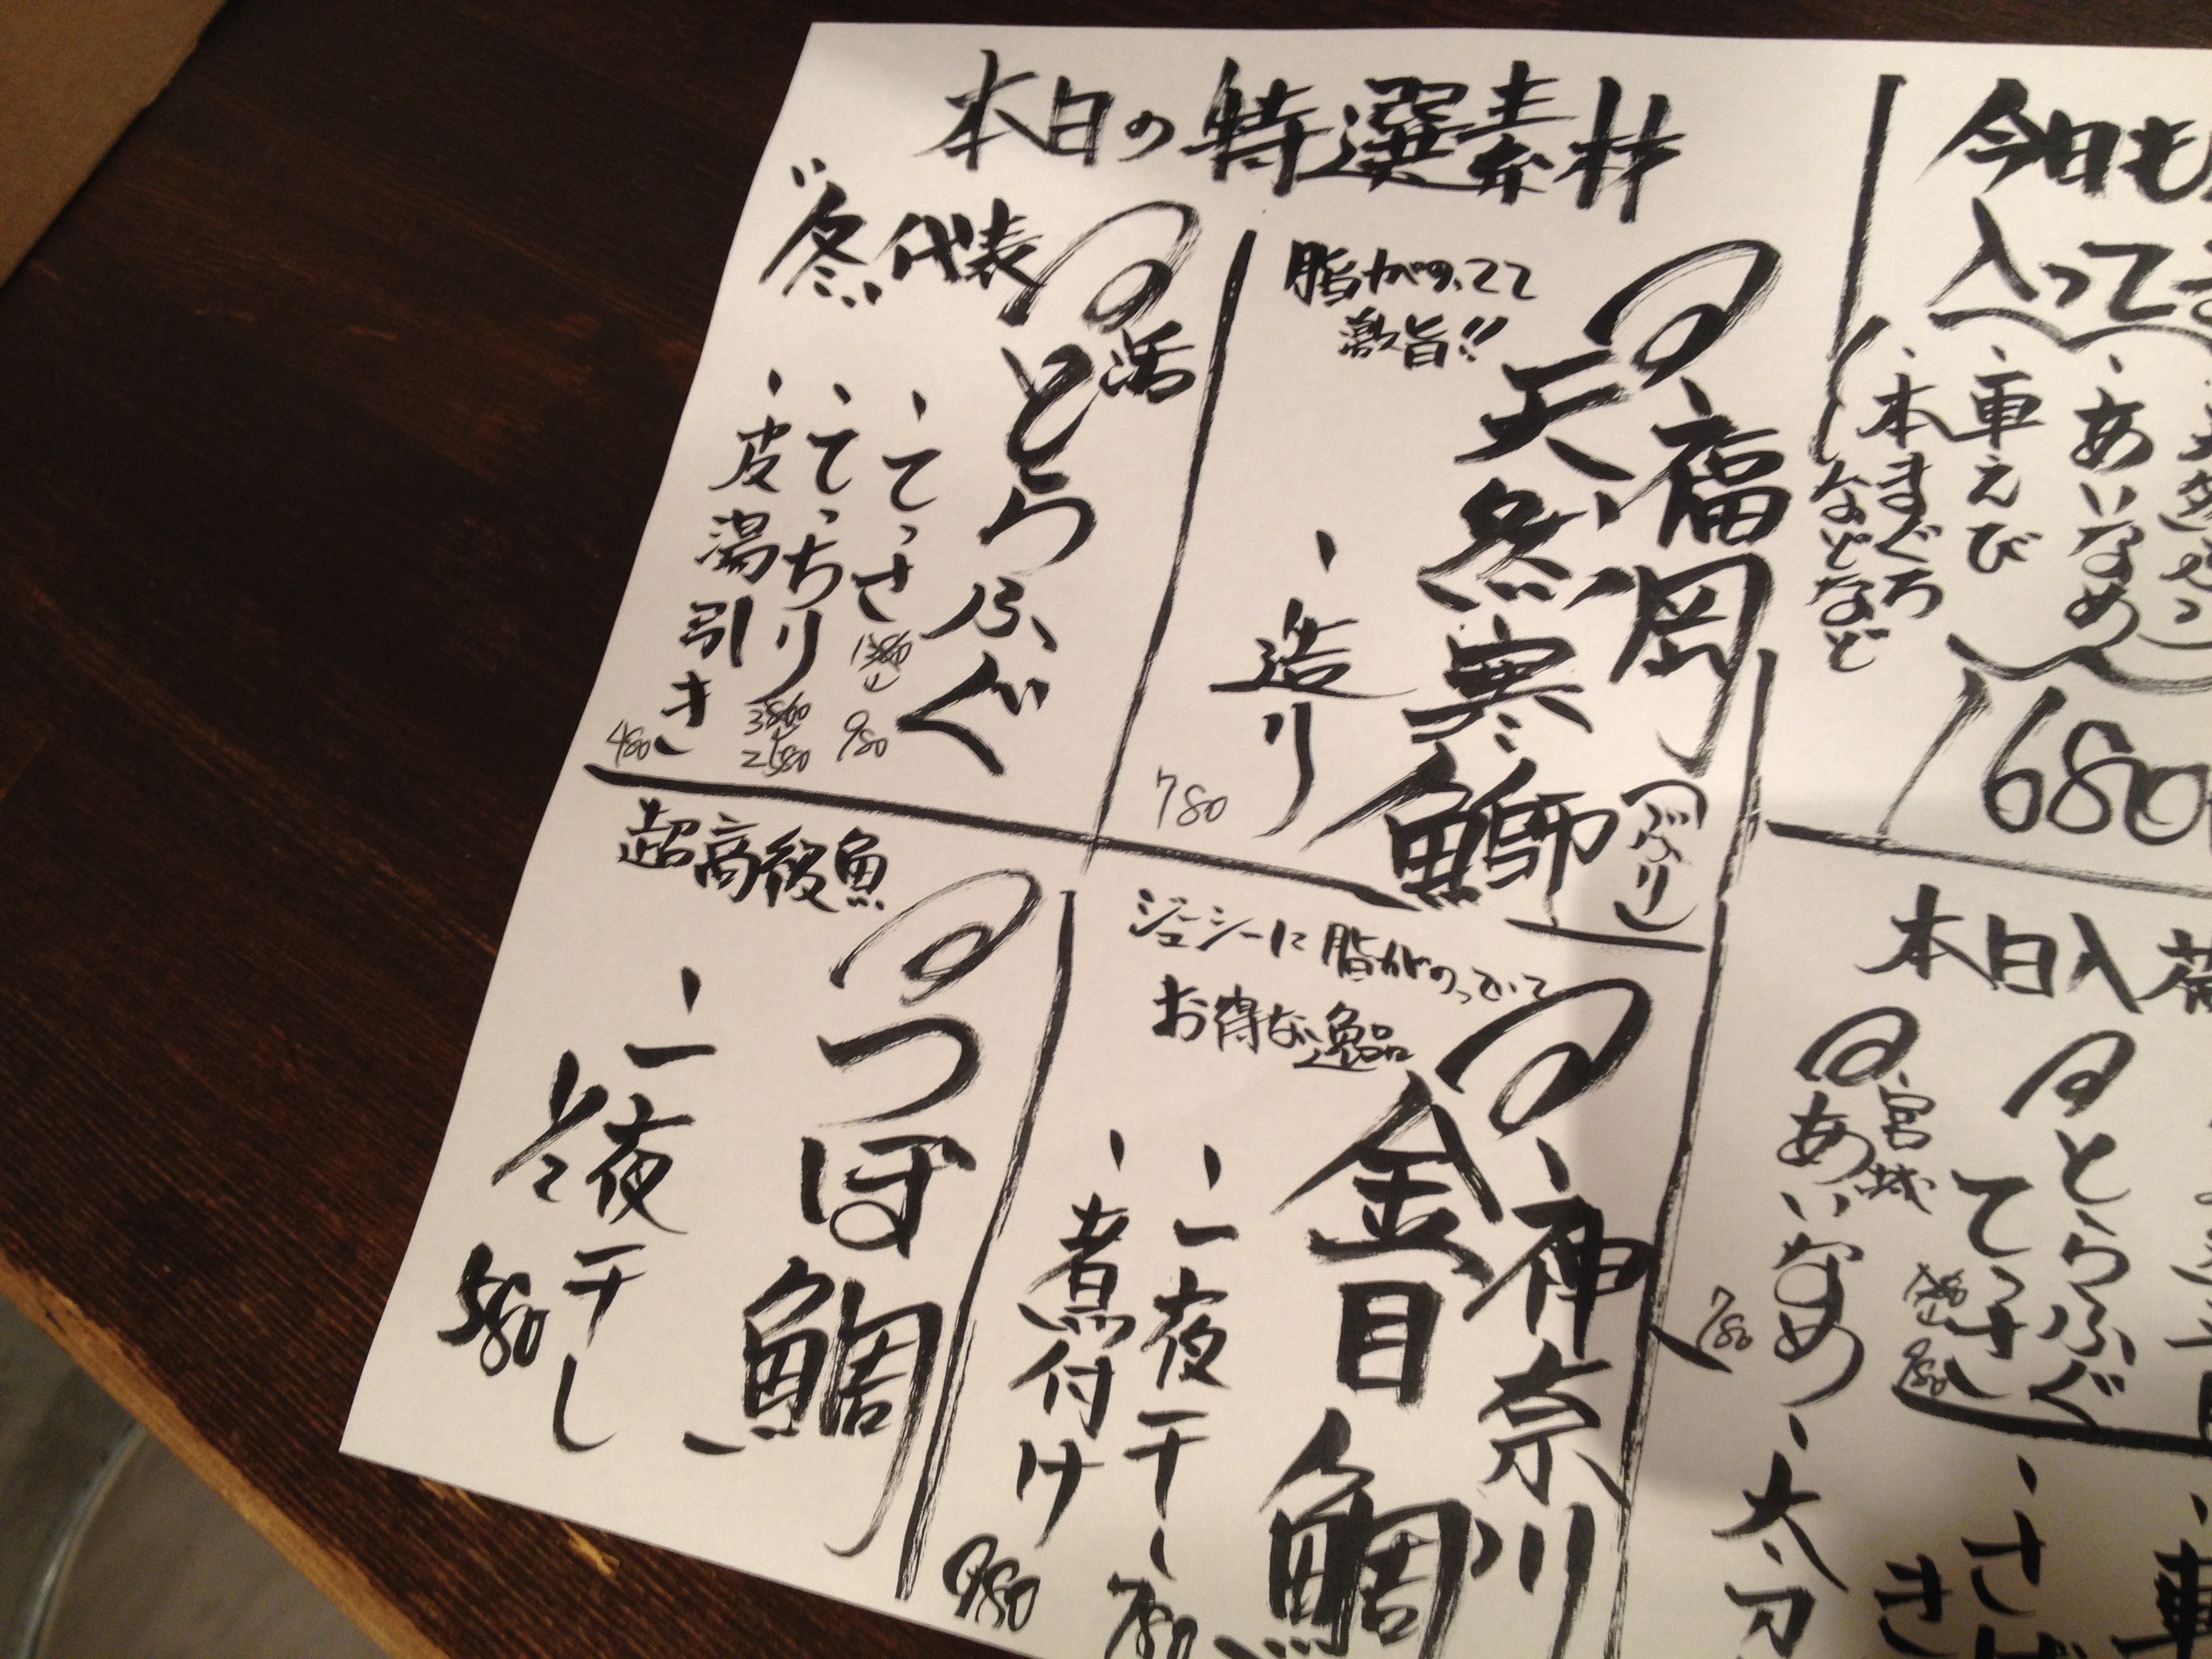 本日の特選素材
脂がのってて
激旨!!
福岡
天然寒鰤
(ぶり)
・造り
780
"冬"代表
活
とらふぐ
・てっさ
980
・てっちり
3860
2580
・皮湯引き
480
ジューシーに脂がのっていて
お得な逸品
神奈川
金目鯛
・一夜干し
780
・煮付け
980
超高級魚
つぼ鯛
・一夜干し
580
今日も
入って
・あいなめ
・車えび
・本まぐろ
などなど
1680
本日入荷
とらふぐ
てっさ
980
・宮城
あいなめ
780
・車
・さば
き
・大分